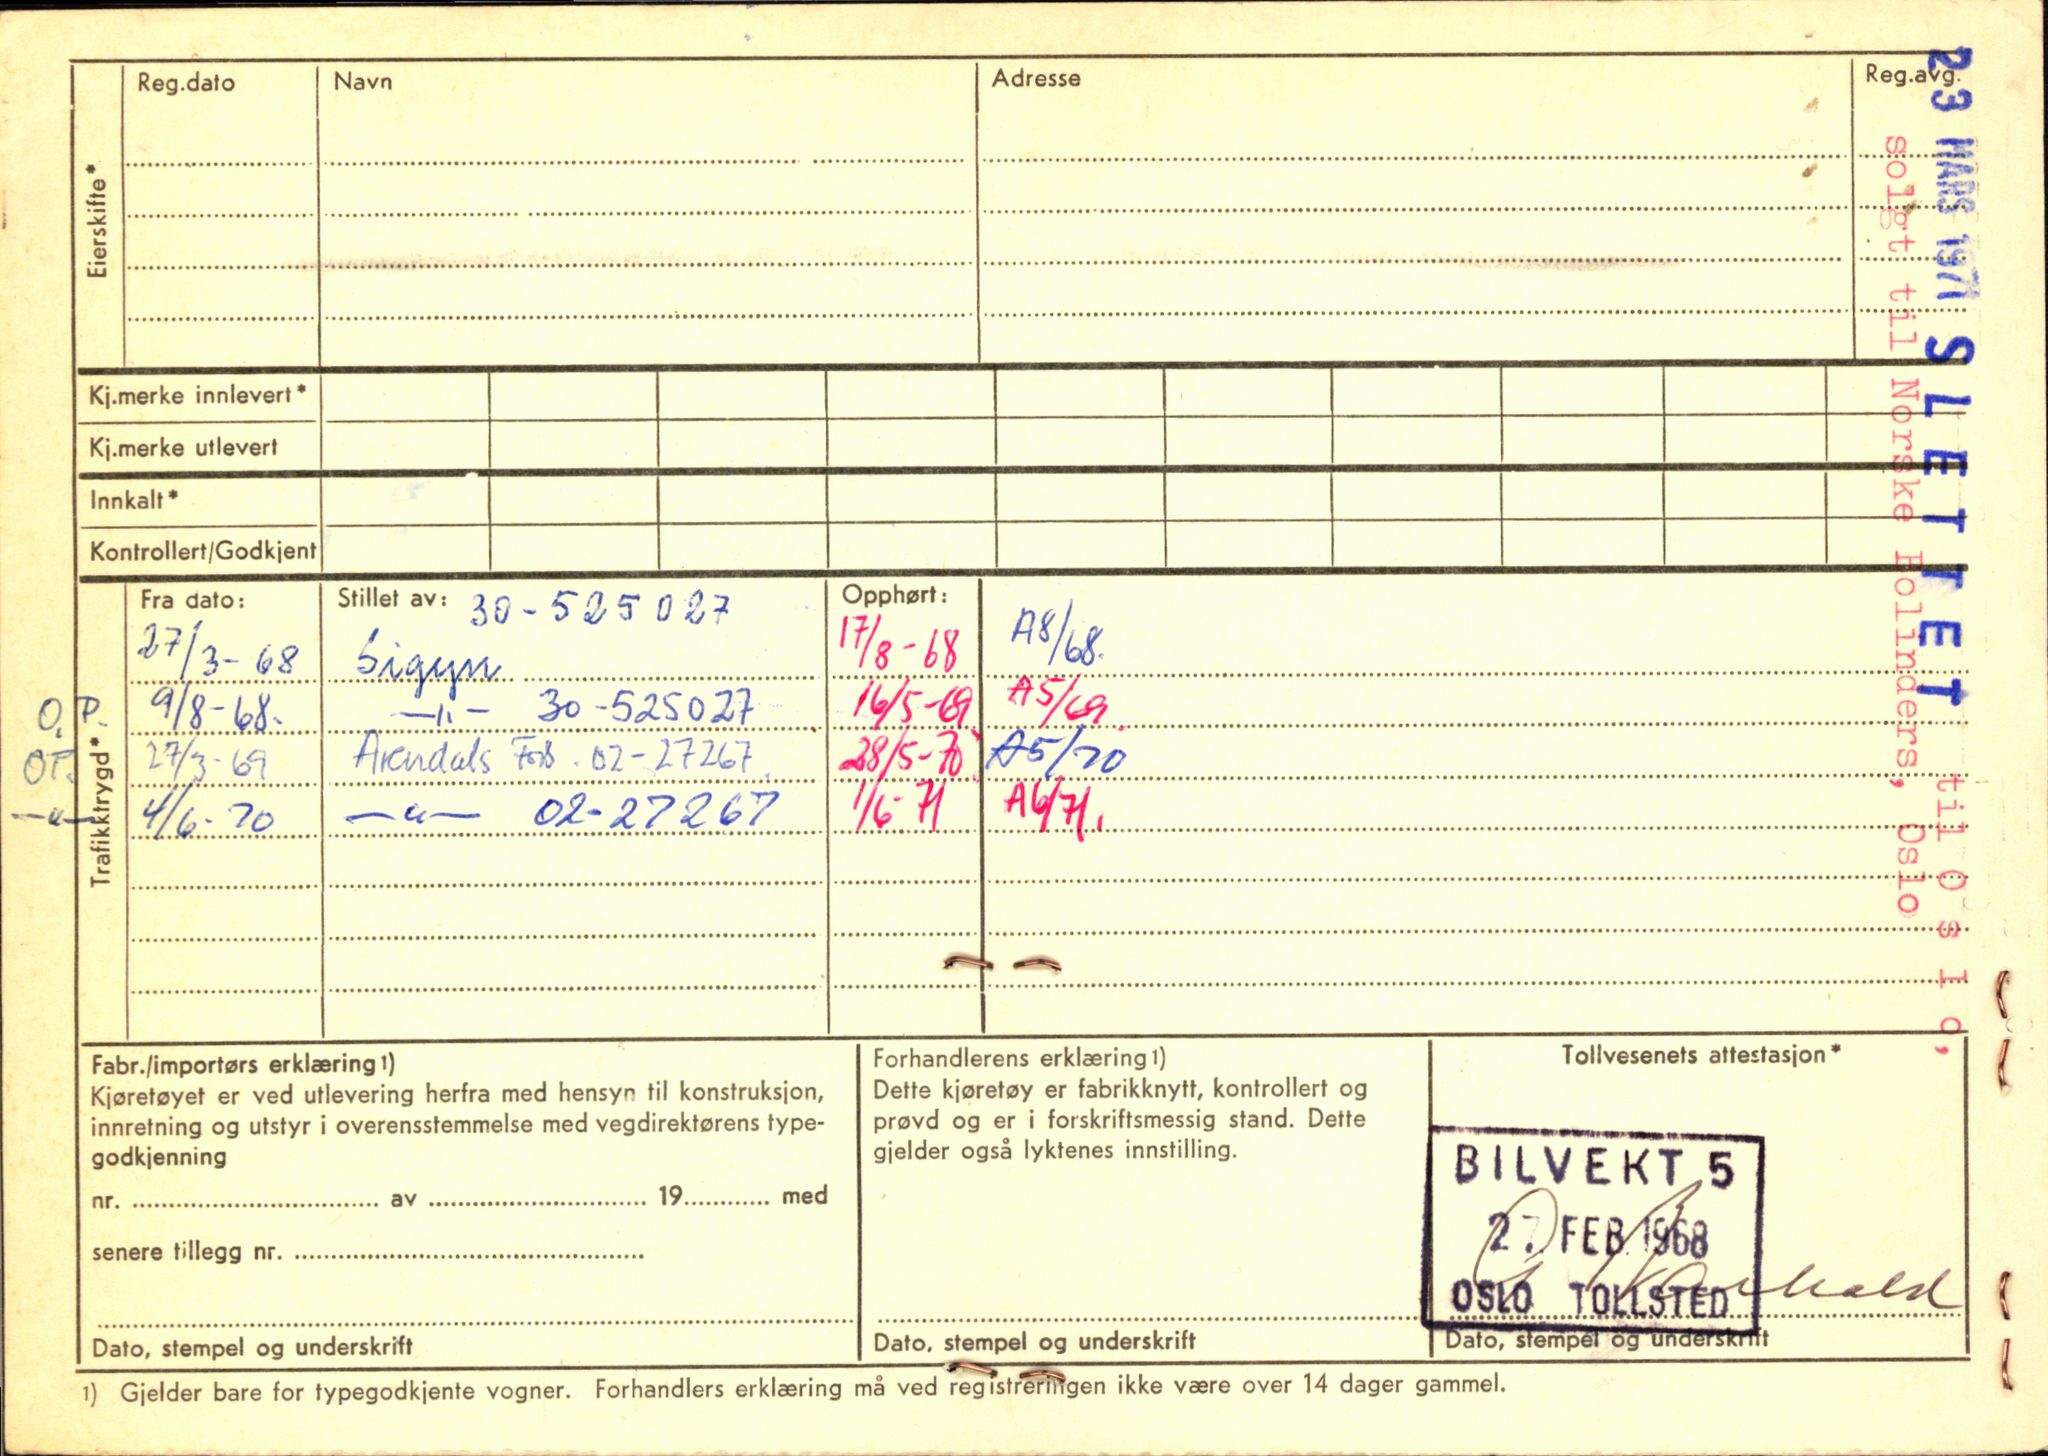 Reg.dato Navn Adresse Reg.avg.
Eierskifte*
Kj.merke innlevert*
Kj.merke utlevert
Innkalt*
Kontrollert/Godkjent
Trafikktrygd*
Fra dato: Stillet av: 30-525027 Opphørt:
27/3-68 Sigyn 17/8-68 A8/68.
O.P. 9/8-68. —"— 30-525027 16/5-69 A5/69.
OP. 27/3-69 Arendals Fors. 02-27267. 28/5-70 A5/70
—"— 4/6-70 —"— 02-27267 1/6-71 A6/71.
23 MARS 1971 SLETTET til Oslo,
solgt til Norske Hollinders, Oslo
Fabr./importørs erklæring1)
Kjøretøyet er ved utlevering herfra med hensyn til konstruksjon,
innretning og utstyr i overensstemmelse med vegdirektørens type-
godkjenning
nr. av 19 med
senere tillegg nr.
Dato, stempel og underskrift
Forhandlerens erklæring1)
Dette kjøretøy er fabrikknytt, kontrollert og
prøvd og er i forskriftsmessig stand. Dette
gjelder også lyktenes innstilling.
Dato, stempel og underskrift
Tollvesenets attestasjon*
BILVEKT 5
27. FEB. 1968
OSLO TOLLSTED
Dato, stempel og underskrift
1) Gjelder bare for typegodkjente vogner. Forhandlers erklæring må ved registreringen ikke være over 14 dager gammel.